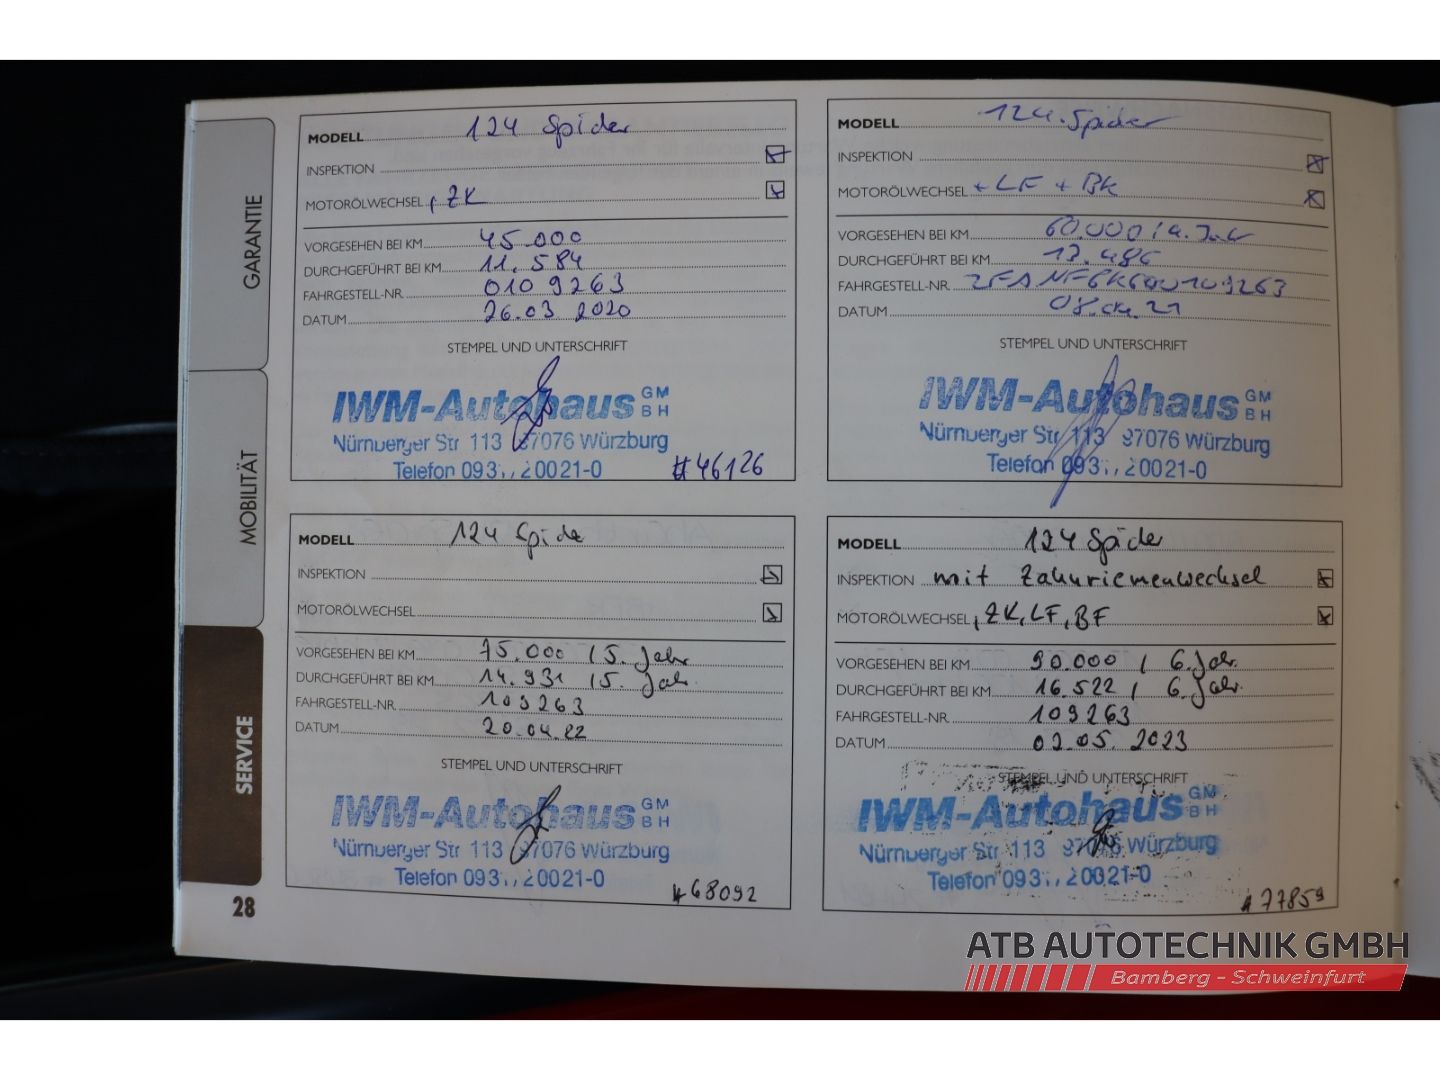 GARANTIE
MOBILITÄT
SERVICE
28
MODELL 124 Spider
INSPEKTION
MOTORÖLWECHSEL, ZK
VORGESEHEN BEI KM 45.000
DURCHGEFÜHRT BEI KM 11.584
FAHRGESTELL-NR. 0109263
DATUM 26.03 2020
STEMPEL UND UNTERSCHRIFT
IWM-Autohaus GMBH
Nürnberger Str 113 97076 Würzburg
Telefon 0931/20021-0
#46126
MODELL 124 Spider
INSPEKTION
MOTORÖLWECHSEL + LF + BK
VORGESEHEN BEI KM 60.000 / 4. Jahr
DURCHGEFÜHRT BEI KM 13.486
FAHRGESTELL-NR.
DATUM
STEMPEL UND UNTERSCHRIFT
IWM-Autohaus GMBH
Nürnberger Str 113 97076 Würzburg
Telefon 0931/20021-0
MODELL 124 Spide
INSPEKTION
MOTORÖLWECHSEL
VORGESEHEN BEI KM 75.000 / 5. Jahr
DURCHGEFÜHRT BEI KM 14.931 / 5. Jahr
FAHRGESTELL-NR. 109263
DATUM 20.04.22
STEMPEL UND UNTERSCHRIFT
IWM-Autohaus GMBH
Nürnberger Str 113 97076 Würzburg
Telefon 0931/20021-0
#68092
MODELL 124 Spider
INSPEKTION mit Zahnriemenwechsel
MOTORÖLWECHSEL, ZK, LF, BF
VORGESEHEN BEI KM 90.000 / 6. Jahr.
DURCHGEFÜHRT BEI KM 16.522 / 6. Jahr.
FAHRGESTELL-NR. 109263
DATUM 02.05. 2023
STEMPEL UND UNTERSCHRIFT
IWM-Autohaus GMBH
Nürnberger Str 113 97076 Würzburg
Telefon 0931/20021-0
#77859
ATB AUTOTECHNIK GMBH
Bamberg - Schweinfurt